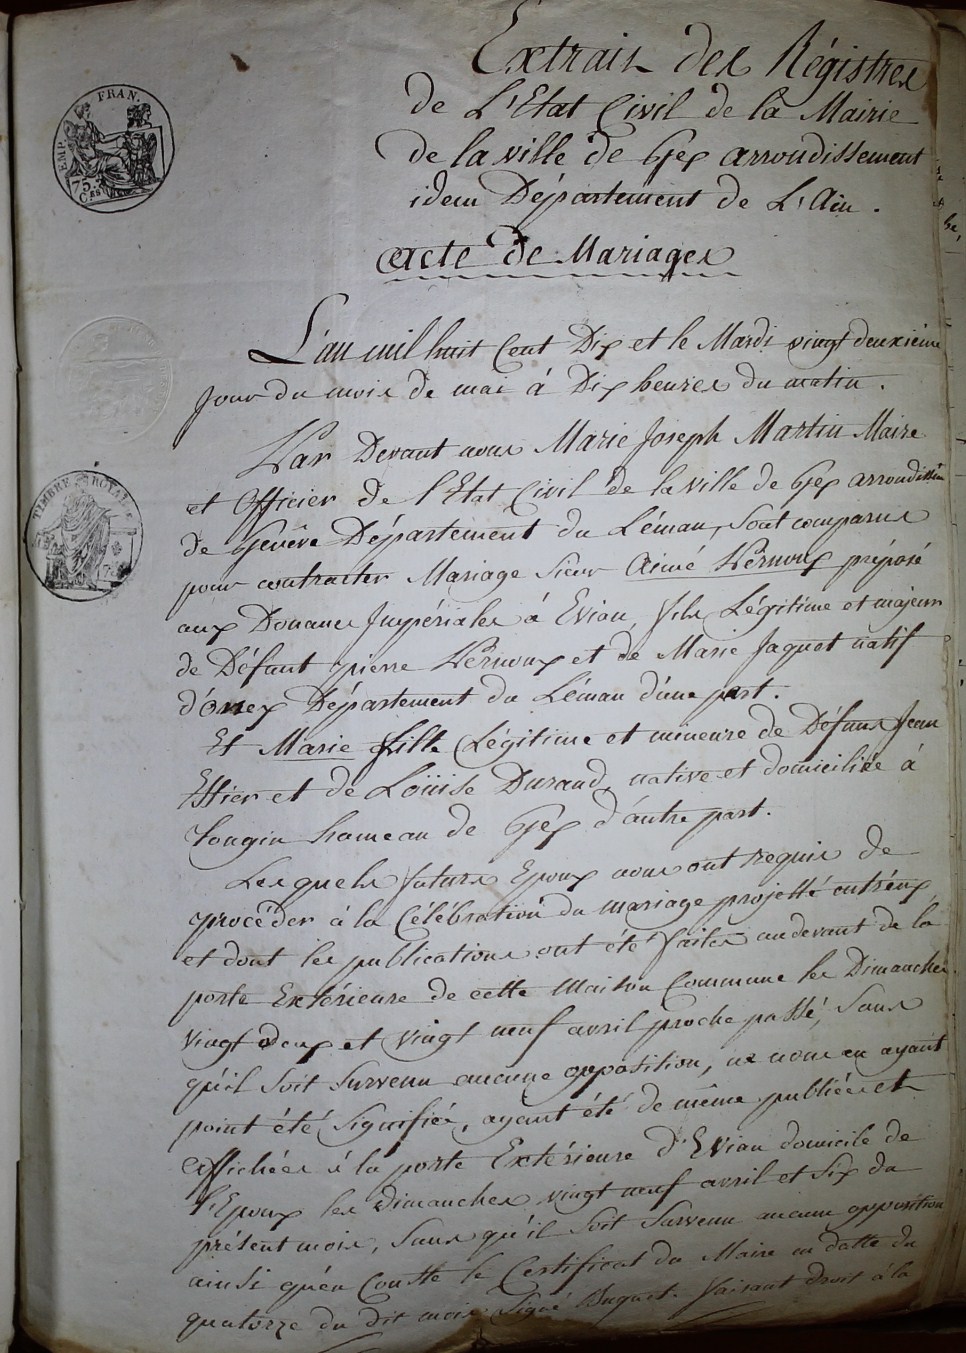 Extrait des Régistres
de L'Etat Civil de la Mairie
de la ville de Gex arrondissement
idem Département de L'Ain.
EMP. FRAN.
75 Ces
acte de Mariages
L'an mil huit Cent Dix et le Mardi vingt deuxième
Jour du mois de mai à Dix heures du matin.
Par Devant nous Marie Joseph Martin Maire
et Officier de l'Etat Civil de la ville de Gex arrondissem
TIMBRE ROYAL
de Genêve Département du Léman, sont comparus
pour contracter Mariage sieur Aimé Pernoux préposé
aux Douanes Impériales à Evian, fils Légitime et majeur
de Défunt pierre Pernoux et de Marie Jaquet natif
d'ornex Département du Léman d'une part.
Et Marie fille Légitime et mineure de Défunt Jean
Ethier et de Loüise Durand, native et domiciliée à
Tougin hameau de Gex d'autre part.
Lesquels futurs Epoux nous ont requis de
procéder à la Célébration du mariage projetté entr'eux
et dont les publications ont été faites au devant de la
porte Extérieure de cette Maison Commune les Dimanches
vingt deux et vingt neuf avril proche passé, sans
qu'il soit survenu aucune opposition, ne nous en ayant
point été signifiée, ayant été de même publiées et
affichées à la porte Extérieure d'Evian domicile de
l'Epoux les dimanches vingt neuf avril et six du
présent mois, sans qu'il soit survenu aucune opposition
ainsi qu'en Conste le Certificat du Maire en datte du
quatorze du dit mois signé Duquet. faisant droit à la